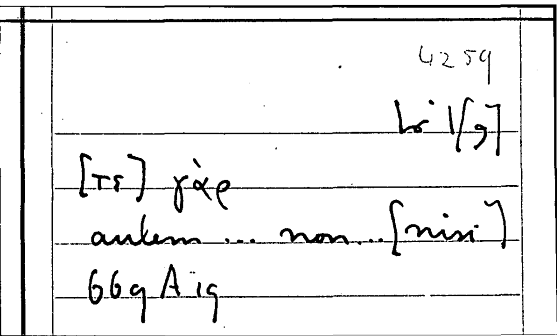 4259
[τε] γὰρ
autem ... non ... [nisi]
669 A 19